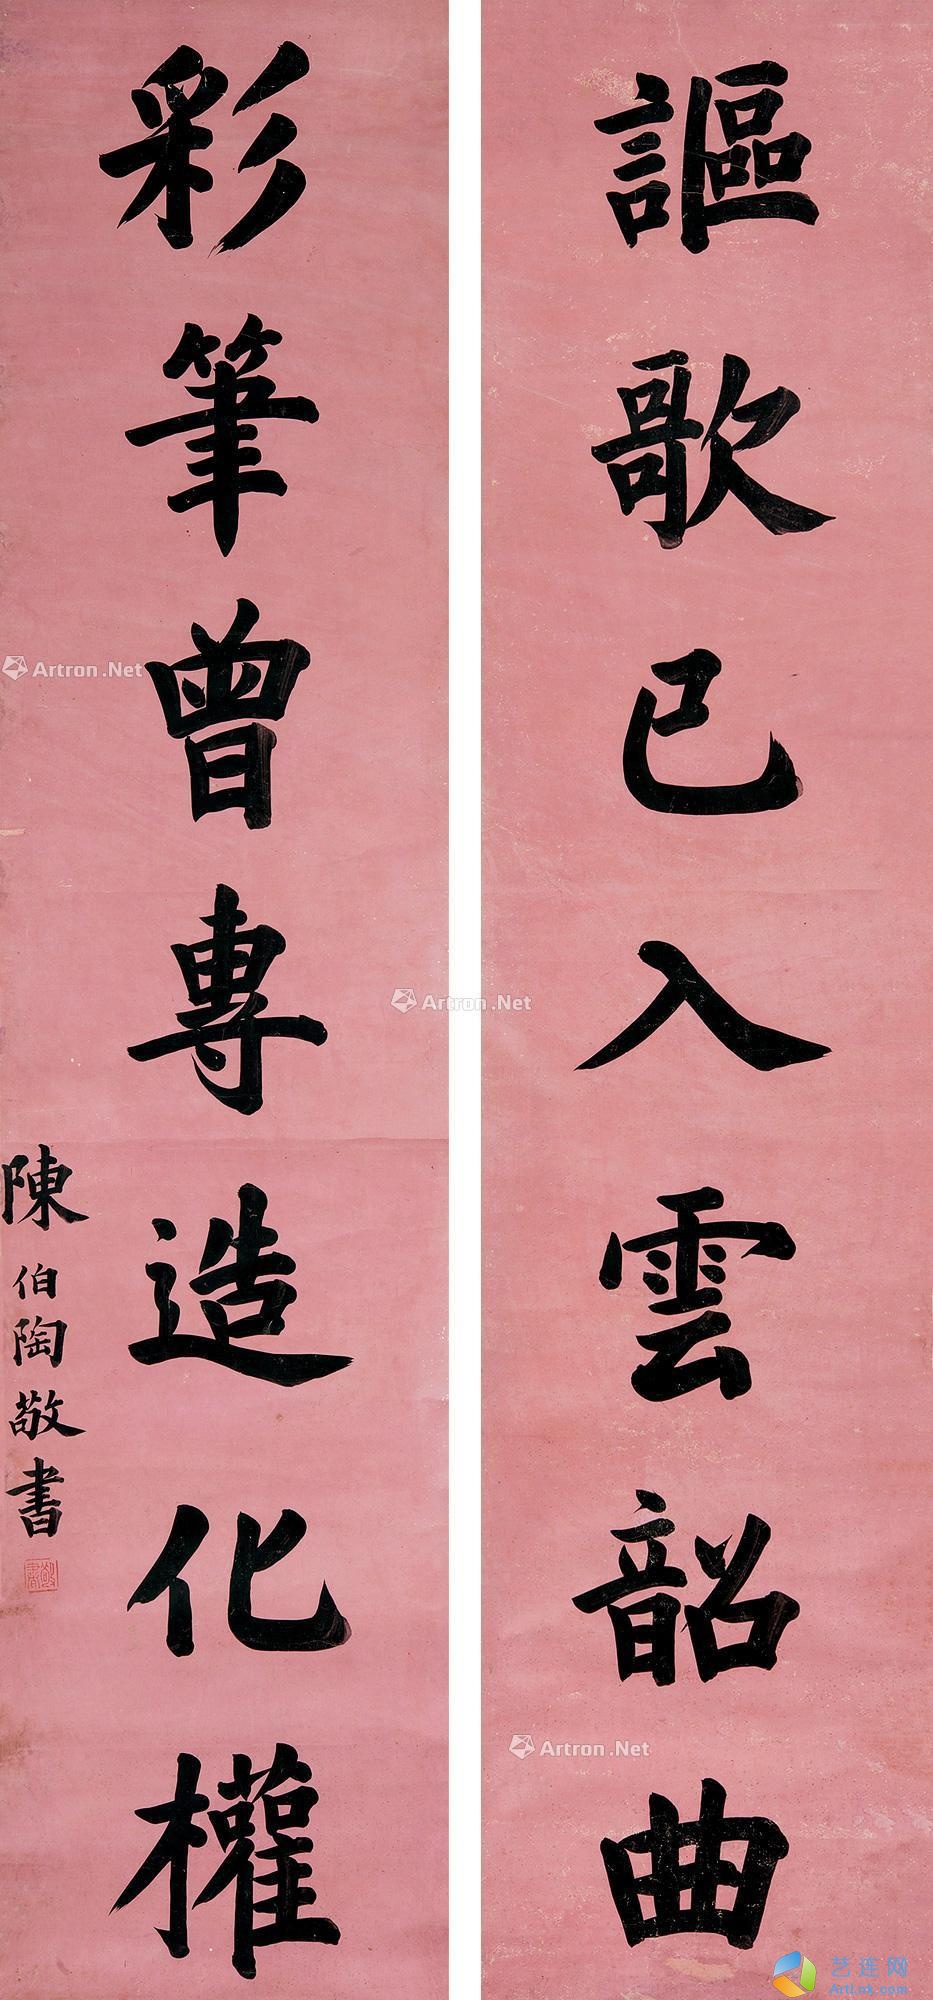 謳歌已入雲韶曲
彩筆曾專造化權
陳伯陶敬書
Artron.Net
Artron.Net
Artron.Net
艺连网
ArtLok.com